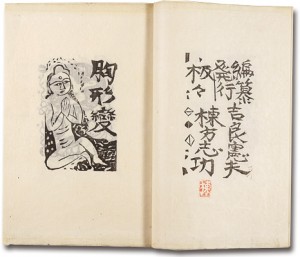 編纂
發行 吉良憲夫
板 棟方志功
胸形變